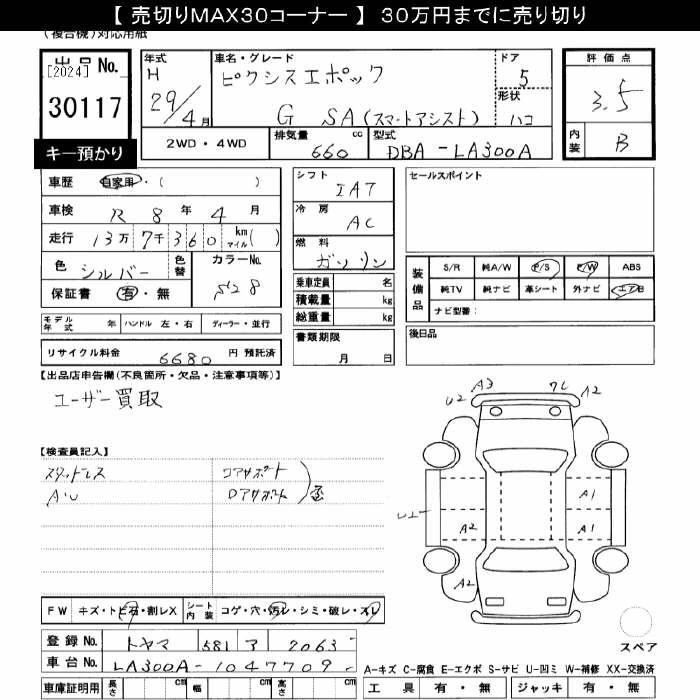 【 売切りMAX30コーナー 】 30万円までに売り切り
(複合機)対応用紙
出品 No.
[2024]
30117
キー預かり
年式
H
29/4月
車名・グレード
ピクシスエポック
G SA(スマートアシスト)
ドア
5
形状
ハコ
評価点
3.5
内装
B
2WD・4WD
排気量 cc
660
型式
DBA-LA300A
車歴 自家用・( )
車検 R 8 年 4 月
走行 13万 7千 360 km マイル ( )
色 シルバー 色替 カラーNo.
S28
保証書 有・無
モデル年式 年 ハンドル 左・右 ディーラー・並行
リサイクル料金 6680 円 預託済
シフト
IAT
冷房
AC
燃料
ガソリン
乗車定員 名
積載量 kg
総重量 kg
書類期限
月 日
セールスポイント
装備品
S/R 純A/W P/S P/W ABS
純TV 純ナビ 革シート 外ナビ エアB
ナビ型番:
後日品
【出品店申告欄(不良箇所・欠品・注意事項等)】
ユーザー買取
【検査員記入】
スタッドレス
A・U
コアサポート
ロアサポート
A3
U2
A2
A1
A2
A1
A2
FW キズ・トビ石・割レX シート内装 コゲ・穴・汚レ・シミ・破レ・スレ
登録 No. トヤマ 581 ア 2063
車台 No. LA300A-1047709
車庫証明用 長さ cm 幅 cm 高さ cm
スペア
A-キズ C-腐食 E-エクボ S-サビ U-凹ミ W-補修 XX-交換済
工具 有・無 ジャッキ 有・無